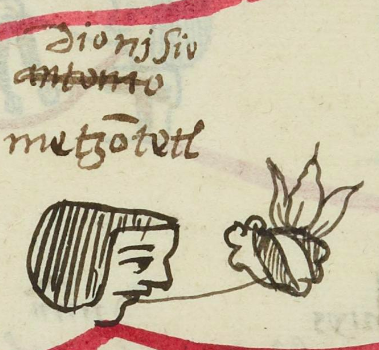 dionisio
antonio
metzōtetl